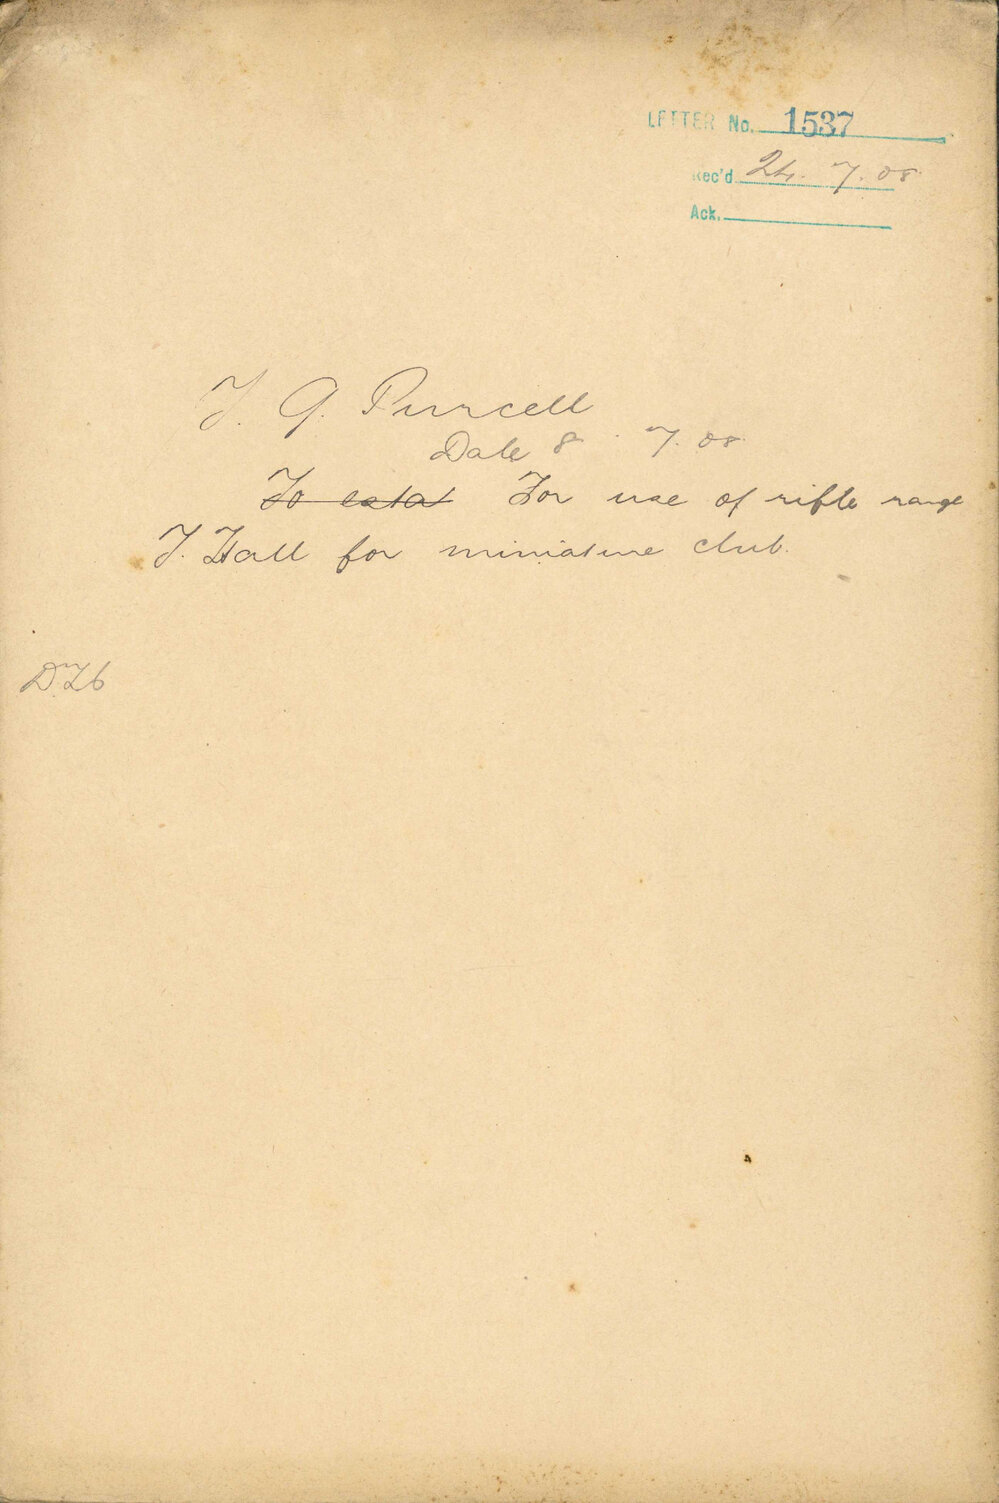 LETTER No. 1537
Rec'd 24. 7. 08
Ack.
T. G. Purcell
Date 8 . 7. 08.
To estat For use of rifle range
T. Hall for miniature club.